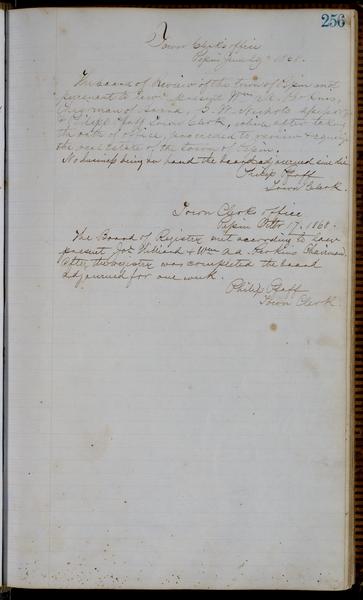 256
Town Clerk's office
Pepin June 29th 1868.
The board of Review of the town of Pepin met
pursuant to law present Wm. A. Perkins,
Chairman of board,
& Philip Pfaff Town Clerk, and after taking
the oath of office, proceeded to review &
the real estate of the town of Pepin.
No business being on hand the board adjourned sine die
Philip Pfaff
Town Clerk.
Town Clerks office
Pepin Octr 17. 1868.
The Board of Register met according to Law
present Jos. Williard & Wm. A. Perkins Chairman
After the register was completed the board
adjourned for one week.
Philip Pfaff
Town Clerk